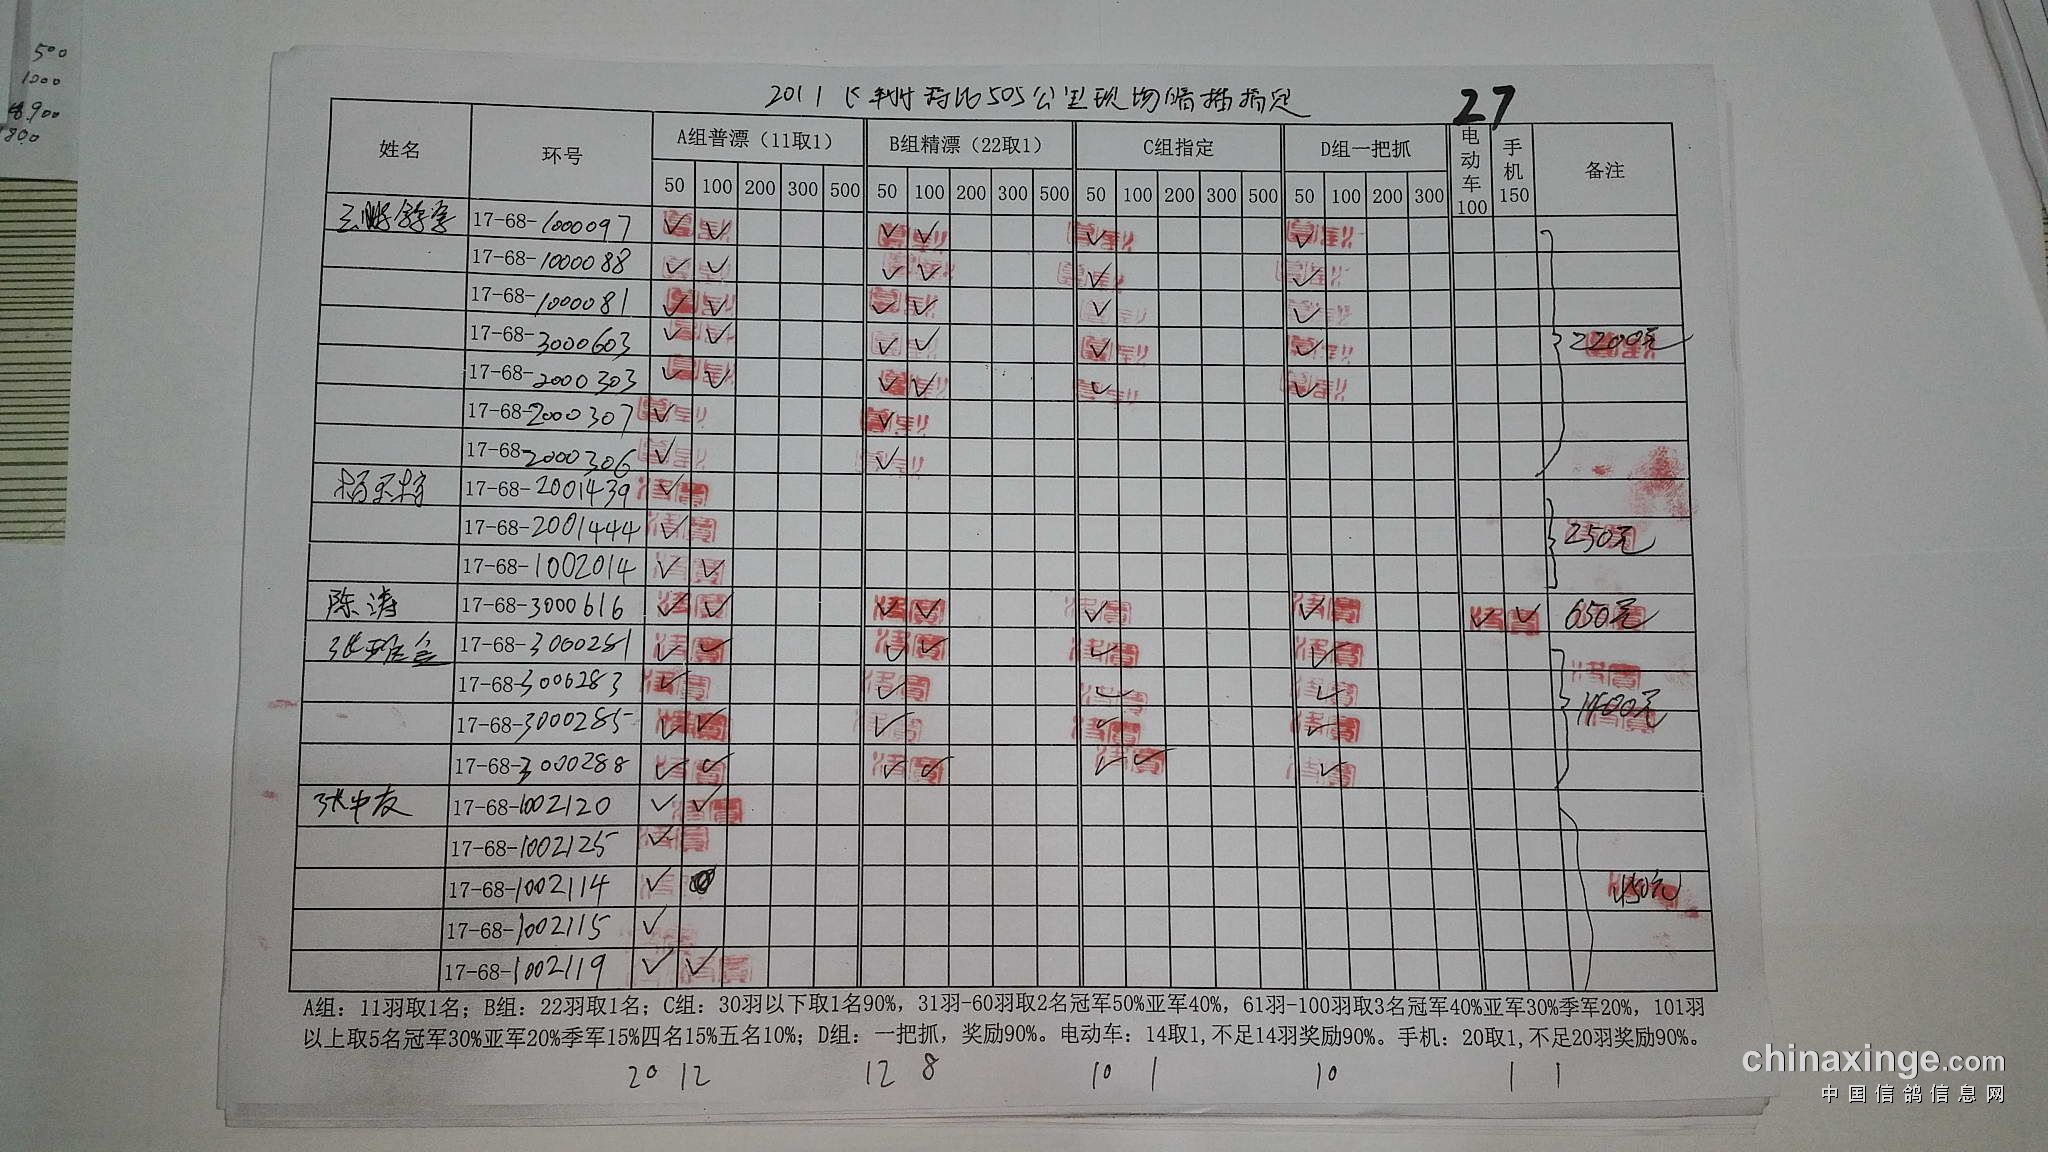 500
1000
900
800
2011 505公里现场暗插指定
27
姓名 环号 A组普漂（11取1） B组精漂（22取1） C组指定 D组一把抓 电动车100 手机150 备注
50 100 200 300 500 50 100 200 300 500 50 100 200 300 500 50 100 200 300
17-68-1000097 ✓ ✓ ✓ ✓ ✓ ✓
17-68-1000088 ✓ ✓ ✓ ✓ ✓ ✓
17-68-1000081 ✓ ✓ ✓ ✓ ✓ ✓
17-68-3000603 ✓ ✓ ✓ ✓ ✓ ✓ 2200元
17-68-2000303 ✓ ✓ ✓ ✓ ✓ ✓
17-68-2000307 ✓ ✓
17-68-2000306 ✓ ✓
17-68-2001439 ✓
17-68-2001444 ✓ 250元
17-68-1002014 ✓ ✓
陈涛 17-68-3000616 ✓ ✓ ✓ ✓ ✓ ✓ ✓ ✓ 650元
17-68-3000281 ✓ ✓ ✓ ✓ ✓ ✓
17-68-3000283 ✓ ✓ ✓ ✓
17-68-3000285 ✓ ✓ ✓ ✓ ✓ 1400元
17-68-3000288 ✓ ✓ ✓ ✓ ✓ ✓ ✓
张中友 17-68-1002120 ✓ ✓
17-68-1002125 ✓
17-68-1002114 ✓ 450元
17-68-1002115 ✓
17-68-1002119 ✓ ✓
A组：11羽取1名；B组：22羽取1名；C组：30羽以下取1名90%，31羽-60羽取2名冠军50%亚军40%，61羽-100羽取3名冠军40%亚军30%季军20%，101羽
以上取5名冠军30%亚军20%季军15%四名15%五名10%；D组：一把抓，奖励90%。电动车：14取1,不足14羽奖励90%。手机：20取1,不足20羽奖励90%。
20 12 12 8 10 1 10 1 1
chinaxinge.com
中国信鸽信息网